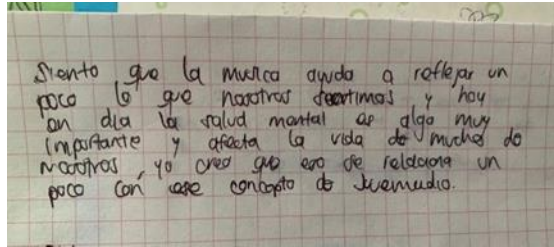 Siento que la musica ayuda a reflejar un
poco lo que nosotros sentimos y hoy
en dia la salud mental es algo muy
importante y afecta la vida de muchos de
nosotros, yo creo que eso se relaciona un
poco con ese concepto de